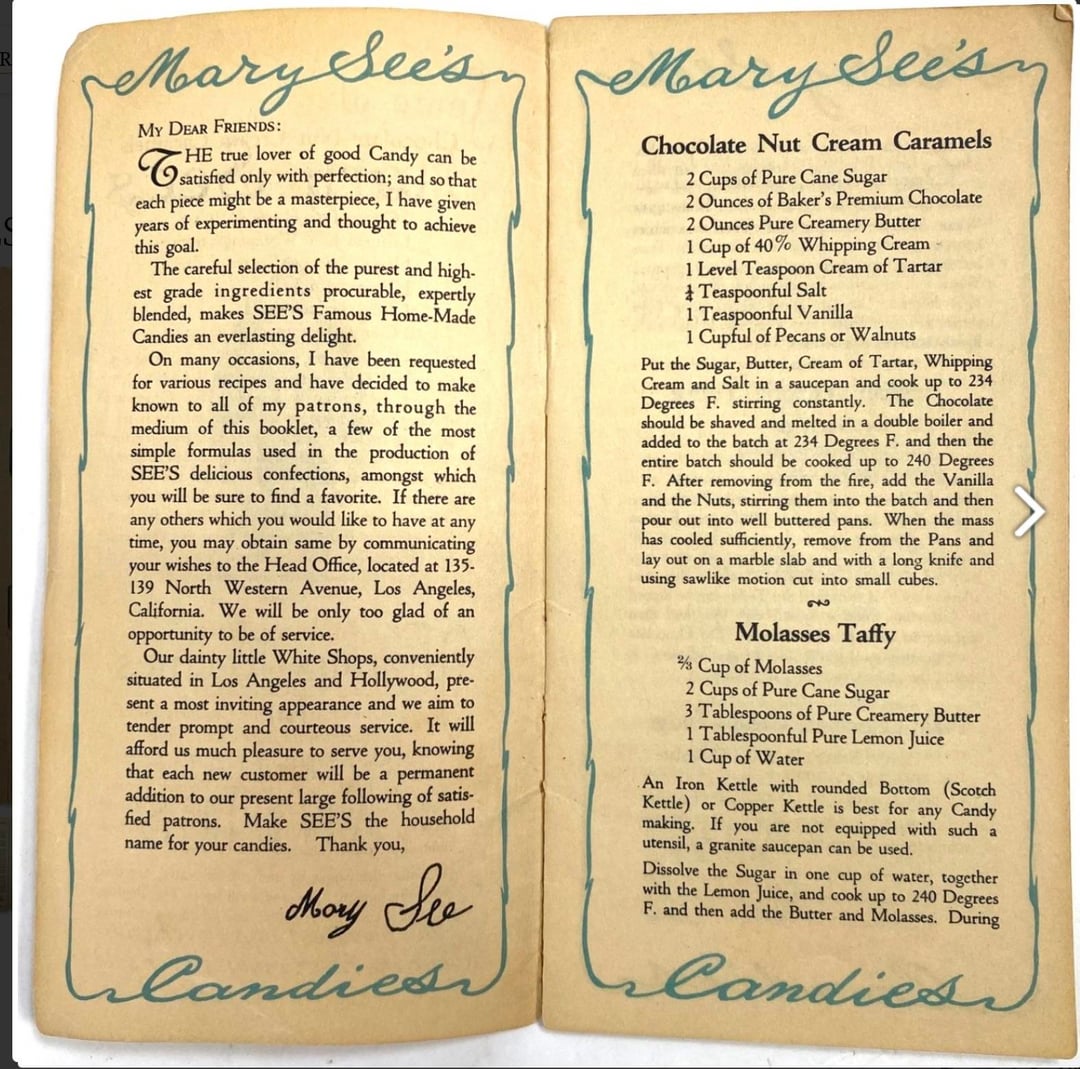 Mary See's
MY DEAR FRIENDS:
THE true lover of good Candy can be
satisfied only with perfection; and so that
each piece might be a masterpiece, I have given
years of experimenting and thought to achieve
this goal.
The careful selection of the purest and high-
est grade ingredients procurable, expertly
blended, makes SEE'S Famous Home-Made
Candies an everlasting delight.
On many occasions, I have been requested
for various recipes and have decided to make
known to all of my patrons, through the
medium of this booklet, a few of the most
simple formulas used in the production of
SEE'S delicious confections, amongst which
you will be sure to find a favorite. If there are
any others which you would like to have at any
time, you may obtain same by communicating
your wishes to the Head Office, located at 135-
139 North Western Avenue, Los Angeles,
California. We will be only too glad of an
opportunity to be of service.
Our dainty little White Shops, conveniently
situated in Los Angeles and Hollywood, pre-
sent a most inviting appearance and we aim to
tender prompt and courteous service. It will
afford us much pleasure to serve you, knowing
that each new customer will be a permanent
addition to our present large following of satis-
fied patrons. Make SEE'S the household
name for your candies. Thank you,
Mary See
Candies
Mary See's
Chocolate Nut Cream Caramels
2 Cups of Pure Cane Sugar
2 Ounces of Baker's Premium Chocolate
2 Ounces Pure Creamery Butter
1 Cup of 40% Whipping Cream
1 Level Teaspoon Cream of Tartar
Teaspoonful Salt
1 Teaspoonful Vanilla
1 Cupful of Pecans or Walnuts
Put the Sugar, Butter, Cream of Tartar, Whipping
Cream and Salt in a saucepan and cook up to 234
Degrees F. stirring constantly. The Chocolate
should be shaved and melted in a double boiler and
added to the batch at 234 Degrees F. and then the
entire batch should be cooked up to 240 Degrees
F. After removing from the fire, add the Vanilla
and the Nuts, stirring them into the batch and then
pour out into well buttered pans. When the mass
has cooled sufficiently, remove from the Pans and
lay out on a marble slab and with a long knife and
using sawlike motion cut into small cubes.
Molasses Taffy
⅔ Cup of Molasses
2 Cups of Pure Cane Sugar
3 Tablespoons of Pure Creamery Butter
1 Tablespoonful Pure Lemon Juice
1 Cup of Water
An Iron Kettle with rounded Bottom (Scotch
Kettle) or Copper Kettle is best for any Candy
making. If you are not equipped with such a
utensil, a granite saucepan can be used.
Dissolve the Sugar in one cup of water, together
with the Lemon Juice, and cook up to 240 Degrees
F. and then add the Butter and Molasses. During
Candies